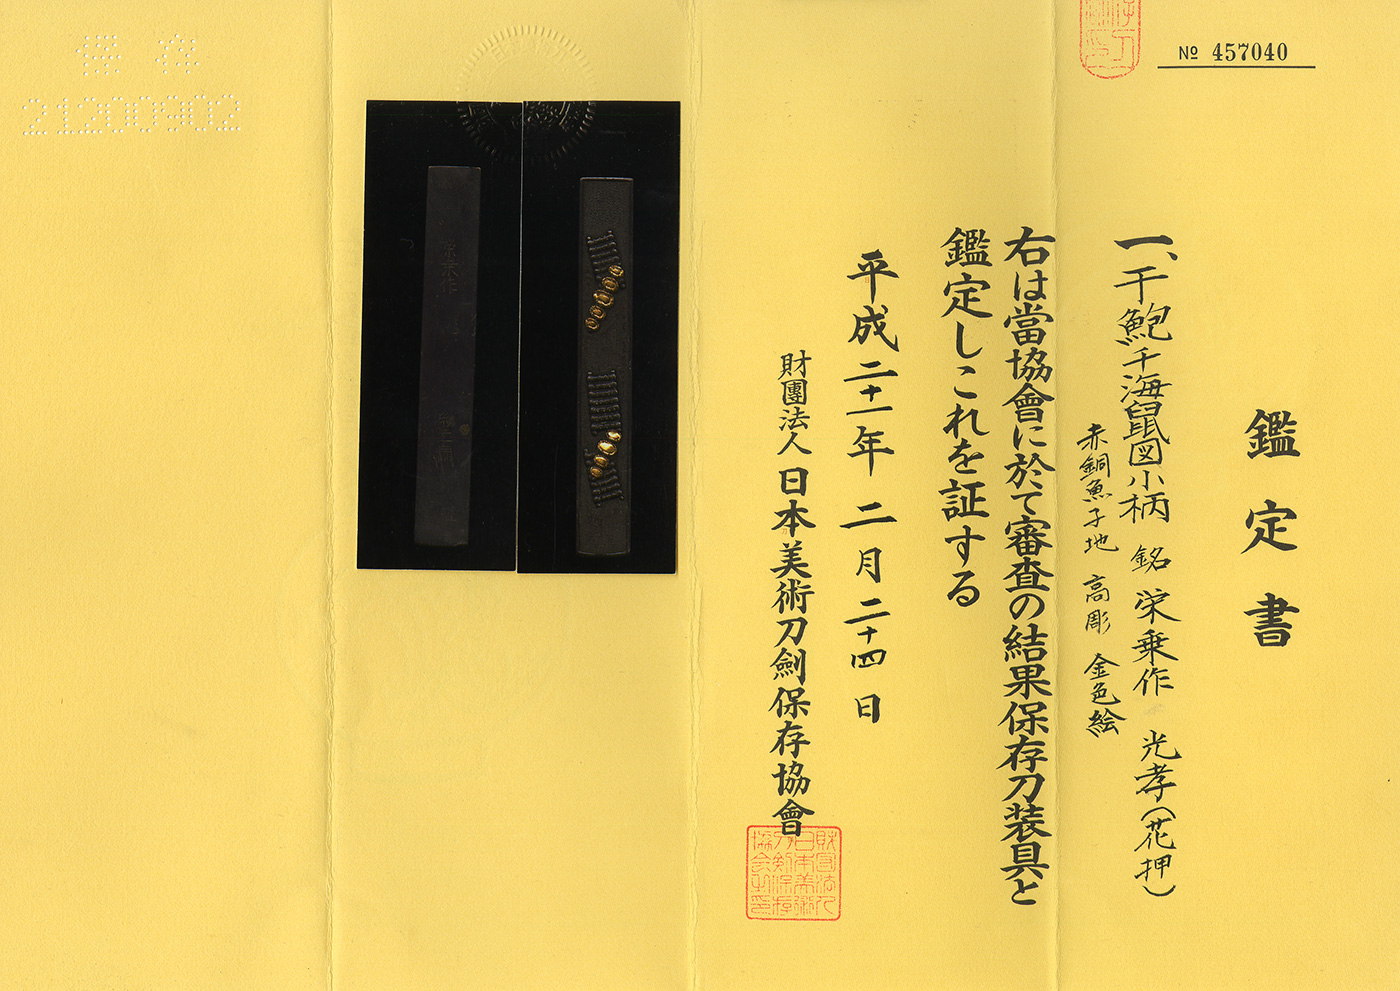 № 457040
鑑定書
一、干鮑干海鼠図小柄 銘 栄乗作 光孝(花押)
赤銅魚子地 高彫 金色絵
右は當協會に於て審査の結果保存刀装具と
鑑定しこれを証する
平成二十一年 二月二十四日
財團法人 日本美術刀劍保存協會
財団法人
日本美術
刀剣保存
協会之印
保存
21200902